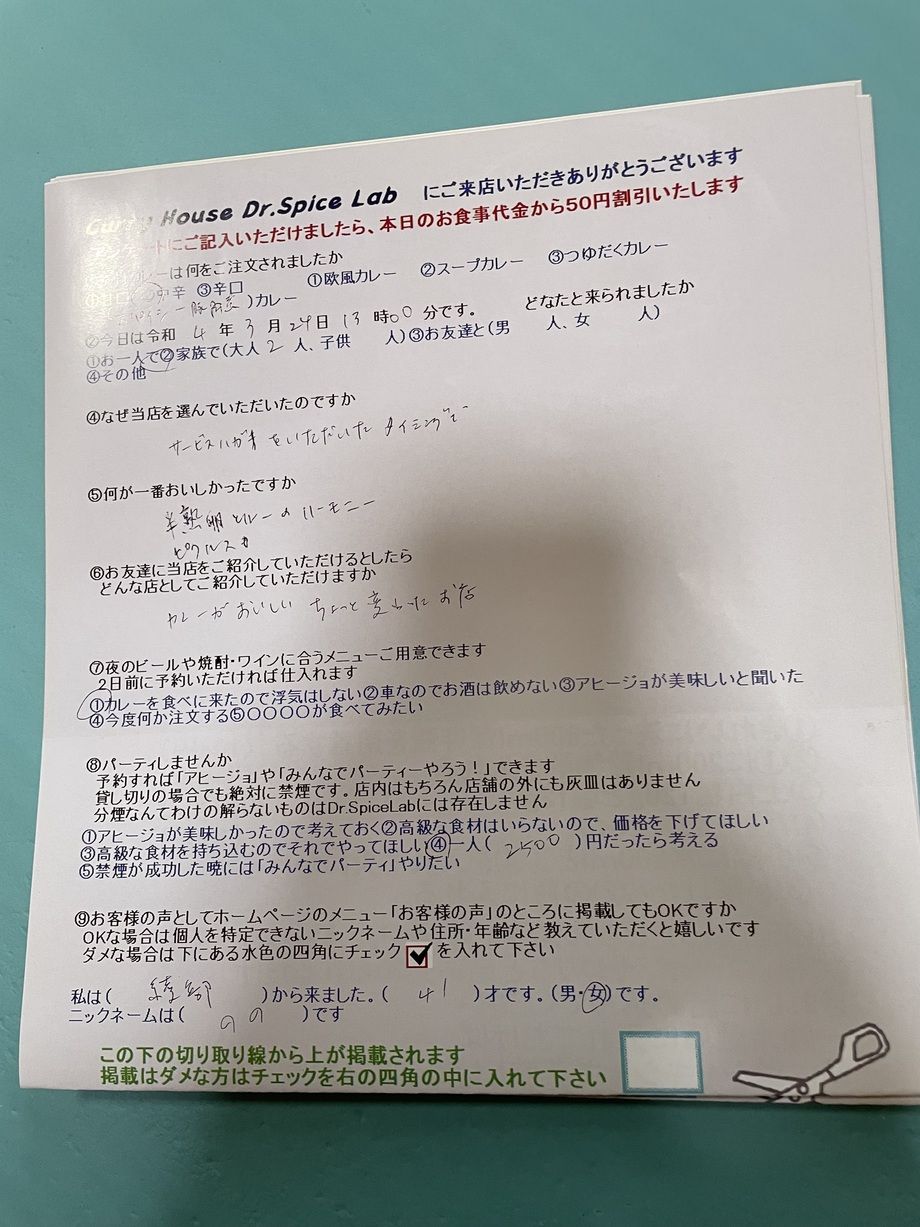 Curry House Dr.Spice Lab にご来店いただきありがとうございます
ートにご記入いただけましたら、本日のお食事代金から50円割引いたします
カレーは何をご注文されましたか
中辛 ③辛口 ①欧風カレー ②スープカレー ③つゆだくカレー
)カレー
②今日は令和 4 年 3 月 29日 13 時00 分です。 どなたと来られましたか
①お一人で②家族で(大人 2 人、子供 人)③お友達と(男 人、女 人)
④その他
④なぜ当店を選んでいただいたのですか
サービスハガキをいただいたタイミングで
⑤何が一番おいしかったですか
半熟卵とルーのハーモニー
ピクルスも
⑥お友達に当店をご紹介していただけるとしたら
どんな店としてご紹介していただけますか
カレーがおいしい ちょっと変わったお店
⑦夜のビールや焼酎・ワインに合うメニューご用意できます
2日前に予約いただければ仕入れます
①カレーを食べに来たので浮気はしない②車なのでお酒は飲めない③アヒージョが美味しいと聞いた
④今度何か注文する⑤〇〇〇〇が食べてみたい
⑧パーティしませんか
予約すれば「アヒージョ」や「みんなでパーティーやろう!」できます
貸し切りの場合でも絶対に禁煙です。店内はもちろん店舗の外にも灰皿はありません
分煙なんてわけの解らないものはDr.SpiceLabには存在しません
①アヒージョが美味しかったので考えておく②高級な食材はいらないので、価格を下げてほしい
③高級な食材を持ち込むのでそれでやってほしい④一人( 2500 )円だったら考える
⑤禁煙が成功した暁には「みんなでパーティ」やりたい
⑨お客様の声としてホームページのメニュー「お客様の声」のところに掲載してもOKですか
OKな場合は個人を特定できないニックネームや住所・年齢など教えていただくと嬉しいです
ダメな場合は下にある水色の四角にチェック を入れて下さい
私は( 綾部 )から来ました。( 41 )才です。(男・女)です。
ニックネームは( のの )です
この下の切り取り線から上が掲載されます
掲載はダメな方はチェックを右の四角の中に入れて下さい